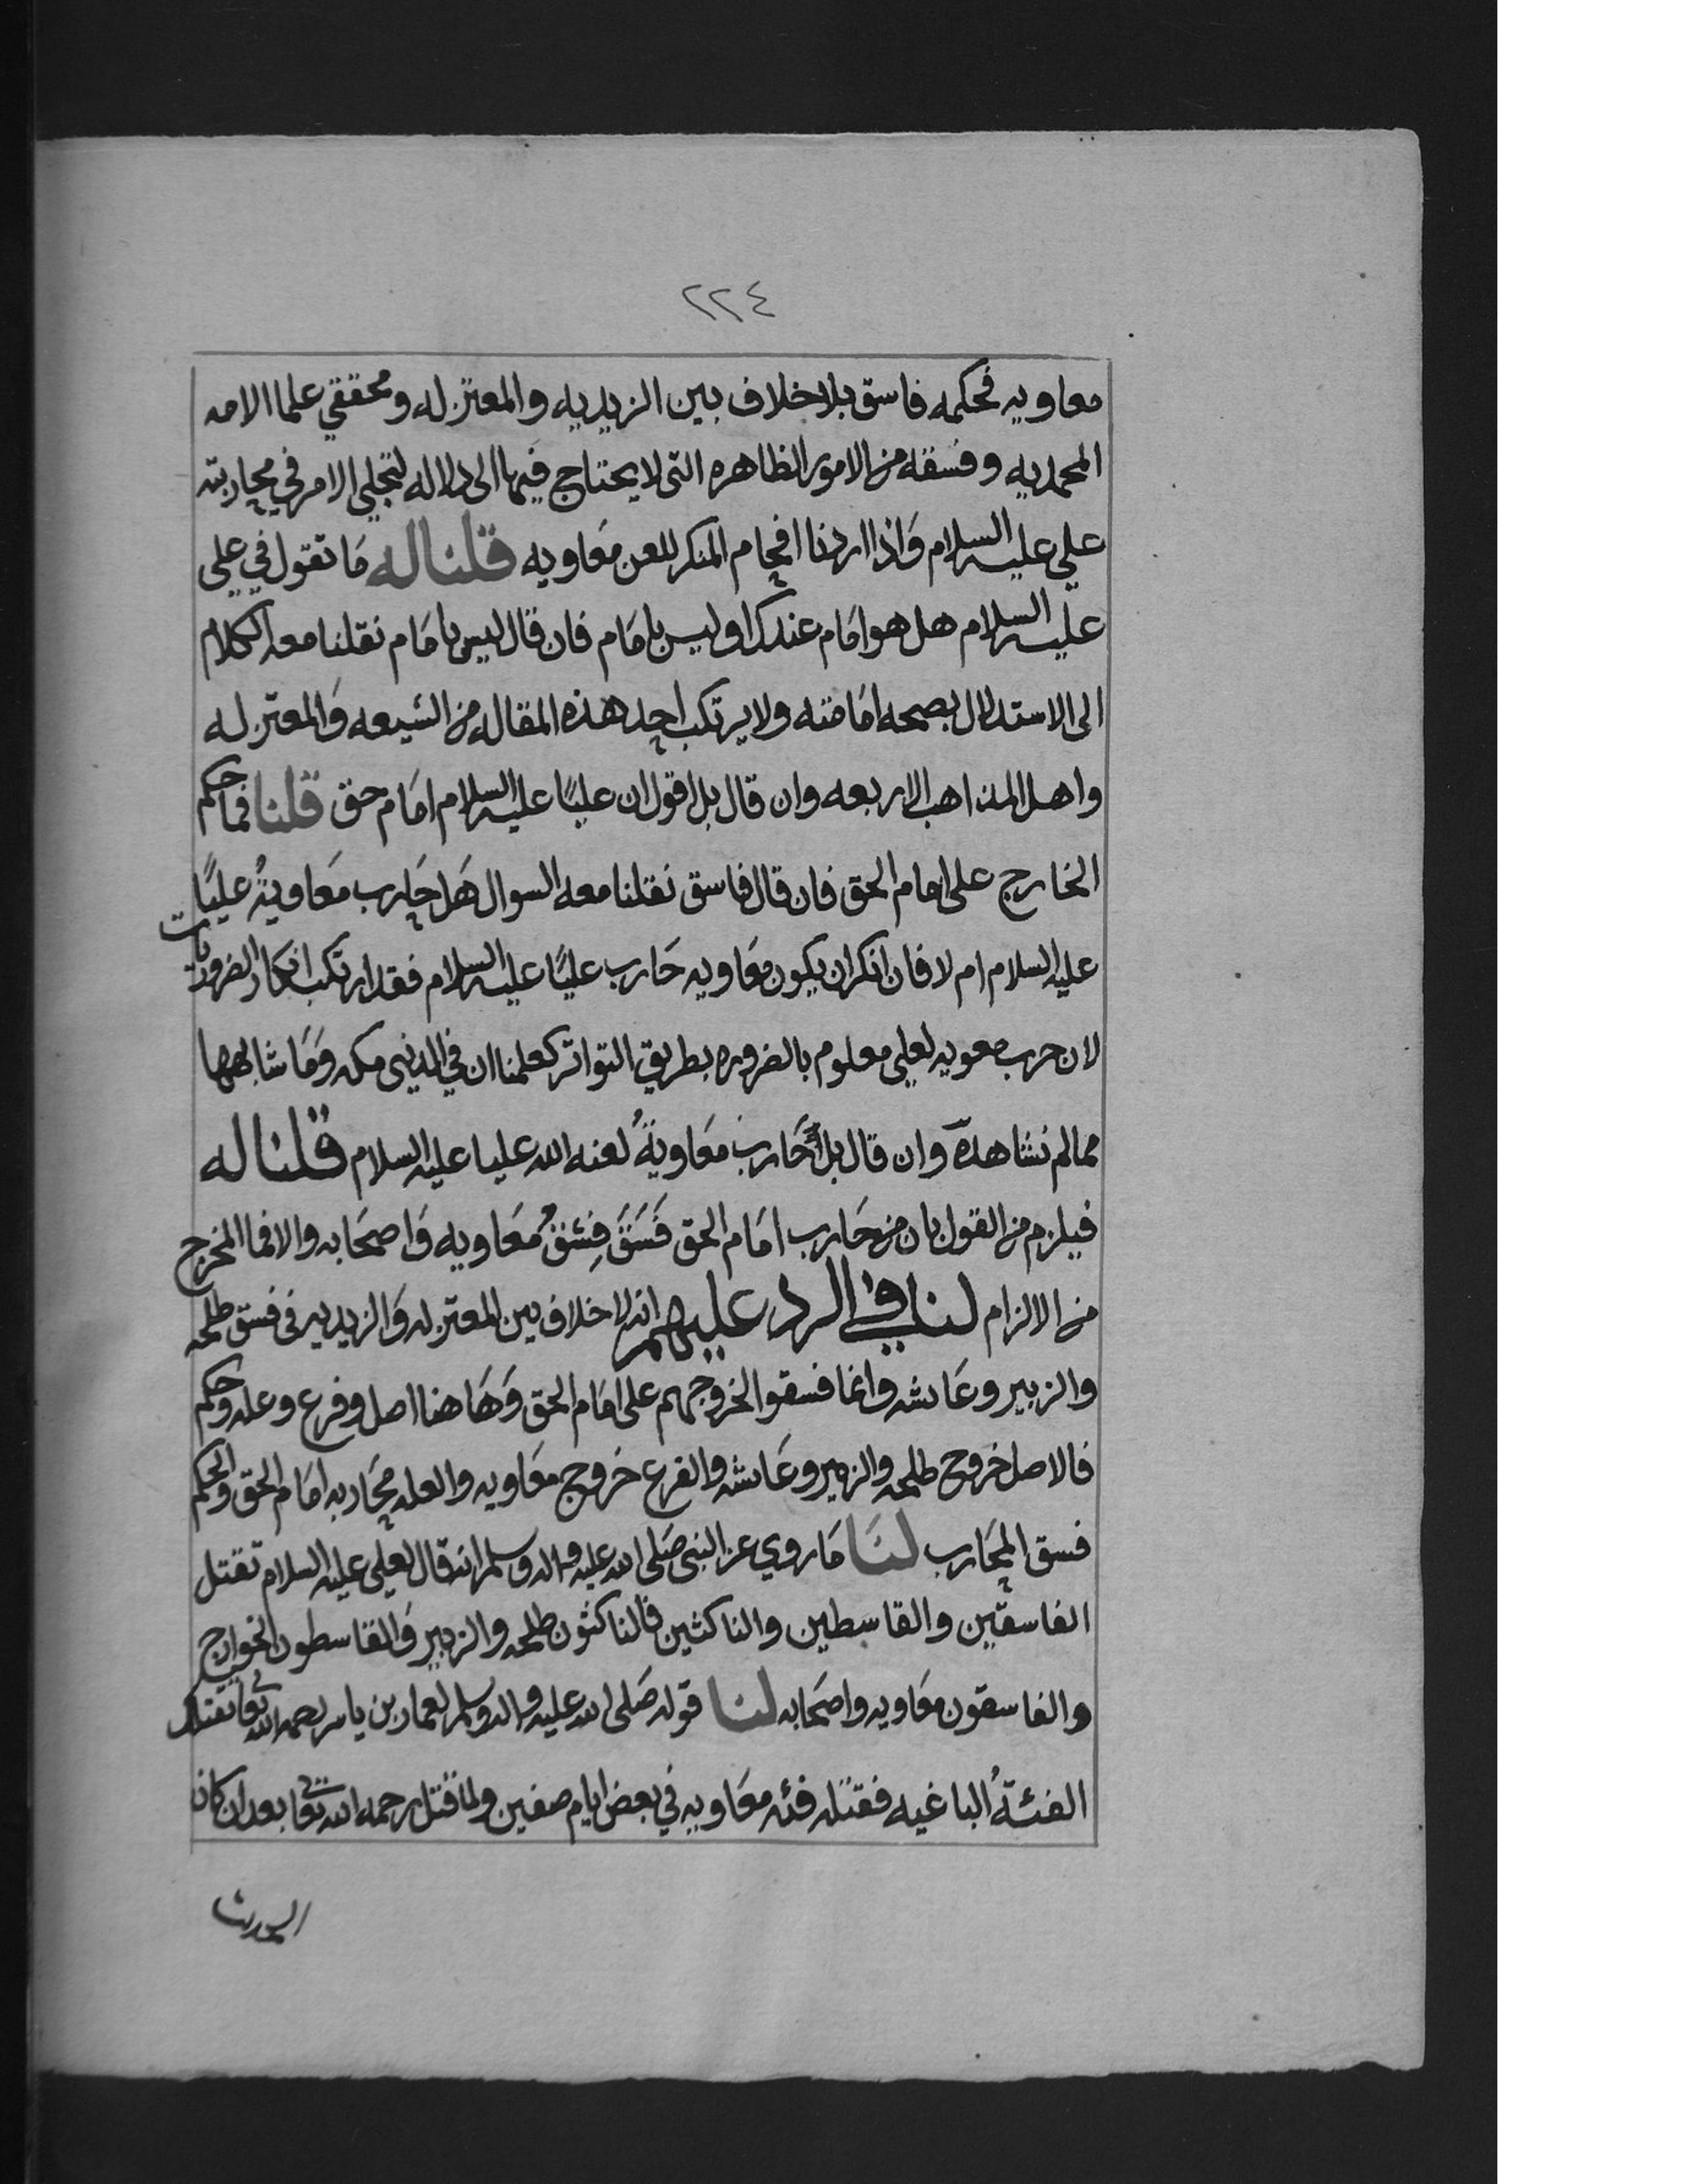 ٢٢٤
معاويه فحكمه فاسق بلا خلاف بين الزيديه والمعتزله ومحققي علما الامه
المحمديه وفسقه من الامور الظاهره التى لا يحتاج فيها الى دلاله لتجلي الامر في محاربته
علي عليه السلام وَاذا اردنا افحام المنكر للعن مَعاويه قلنا له مَا تقول في علي
عليه السلام هل هو امَام عندك او ليس بامَام فان قال ليس بامَام نقلنا معه الكلام
الى الاستدلال بصحه امَامته ولا يرتكب احد هذه المقاله من الشيعه وَالمعتزله
واهل المذاهب الاربعه وان قال بل اقول ان عليًا عليه السلام امَام حق قلنا فما حكم
الخارج على امام الحق فان قال فاسق نقلنا معه السوال هَل حَارب مَعاويةُ عليًا
عليه السلام ام لا فان انكر ان يكون مَعاويه حَارب عليًا عليه السلام فقد ارتكب انكار الضروريات
لان حرب معويه لعلي معلوم بالضروره بطريق التواتر كعلمنا ان في الدنيى مكه وَمَا شابهها
ممالم نشاهده وان قال بل حَاربَ مَعاويةُ لعنه الله عليا عليه السلام قلنا له
فيلزم من القول بان من حَارب امَام الحق فَسَقَ فِسْقُ مَعَاويه وَاصحَابه والا فما المخرج
من الالزام لنا في الرد عليهم انه لا خلاف بين المعتزله وَالزيديه فى فسق طلحه
والزبير وعَايشه وانما فسقوا لخروجهم على امَام الحق وَهَاهنا اصل وفرع وعله وحكم
فالاصل خروج طلحه والزبير وعَايشه والفرع خروج معَاويه والعله محَاربه امَام الحق والحكم
فسق المحَارب لنَا مَا روي عن النبى صَلى الله عليه واله وسلم انه قال لعلي عليه السلام تقتل
الفاسقين والقاسطين والناكثين فالناكثون طلحه والزبير وَالقاسطون الخوارج
والفاسقون معَاويه واصحَابه لنا قوله صَلى الله عليه واله وسلم لعمار بن ياسر رحمه الله تعا تقتلك
الفئةُ الباغيه فقتله فئه معَاويه في بعض ايام صفين ولما قتل رحمه الله تعا بعد ان كان